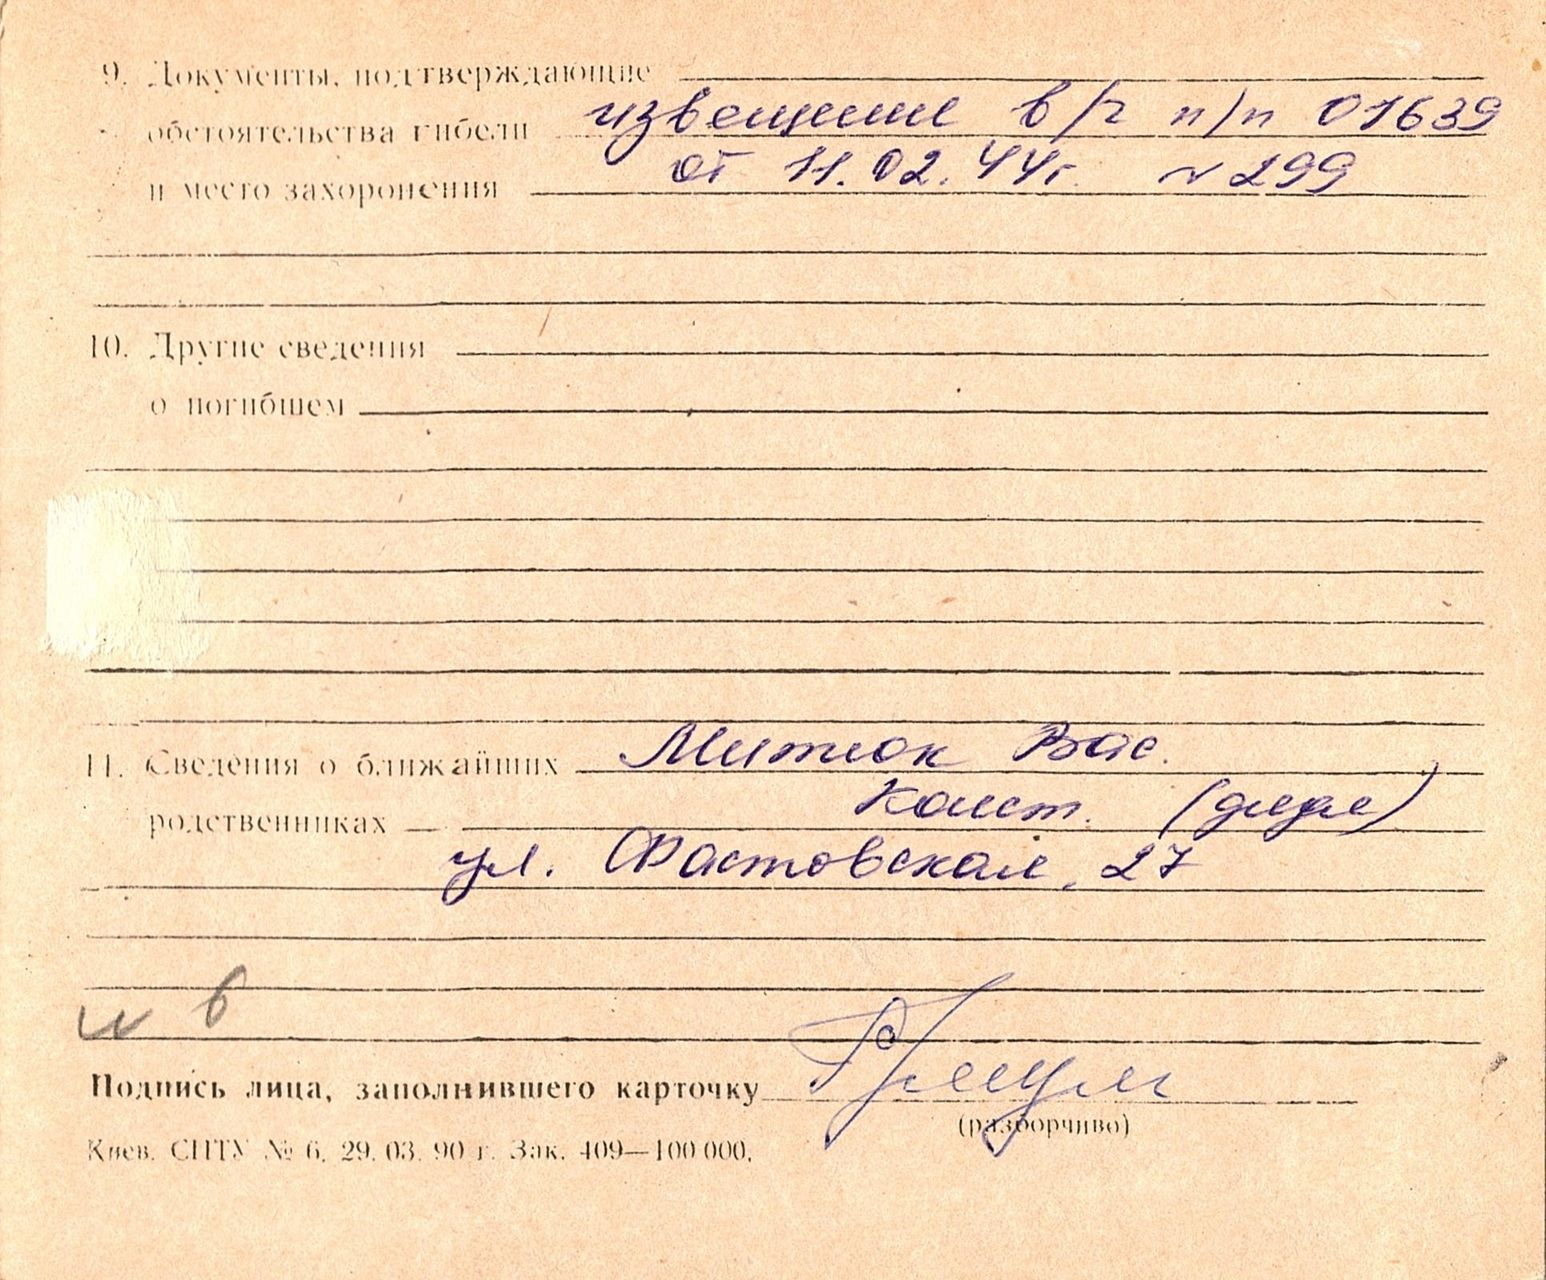 9. Документы, подтверждающие
обстоятельства гибели извещение в/ч п/п 01639
и место захоронения от 11.02.44г. N 299
10. Другие сведения
о погибшем
11. Сведения о ближайших Митюк Вас.
родственниках Конст. (дядя)
ул. Фастовская, 27
N 6
Подпись лица, заполнившего карточку
(разборчиво)
Киев. СПТУ № 6. 29. 03. 90 г. Зак. 409—100 000.